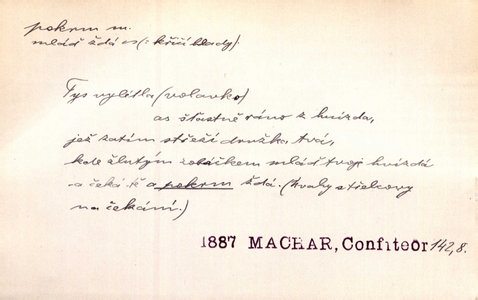 pokrm m.
mládě žádá es (: křičí hlady).
Tys vylítla (volavko)
as šťastně ráno z hnízda,
jež zatím střeží družka tvá,
kde žlutým zobáčkem mládě tvoje hvízdá
a čeká tě a pokrm žádá. (Úvahy střelcovy
na čekání.)
1887 MACHAR, Confiteor 142, 8.